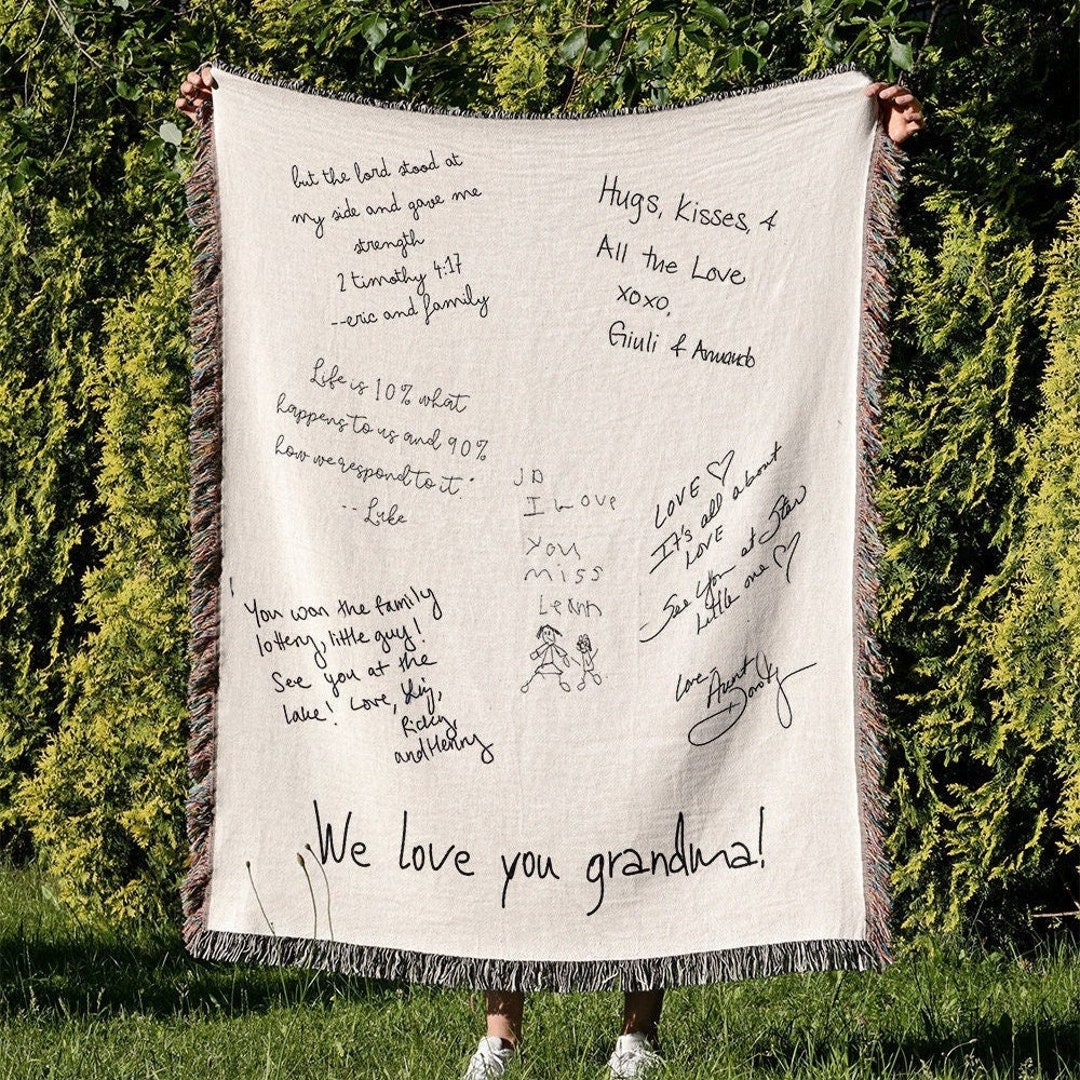 but the lord stood at
my side and gave me
strength
2 timothy 4:17
--eric and family
Hugs, Kisses, &
All the Love
xoxo,
Giuli & Armando
Life is 10% what
happens to us and 90%
how we respond to it."
-- Luke
JD
I Love
You
miss
Leann
LOVE ♡
It's all about
LOVE
See You at Star
little one ♡
Love, Aunt
Doroty
You won the family
lottery, little guy!
See you at the
lake! Love,
Ricky,
and Henry
We love you grandma!